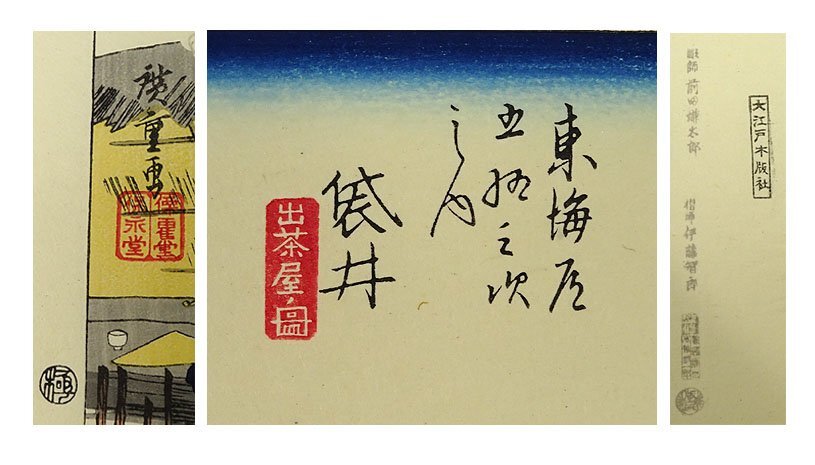 廣重画
保永堂
極
東海道
五拾三次
之内
袋井
出茶屋ノ圖
大江戸木版社
彫師 前田謙太郎
摺師 伊藤智郎